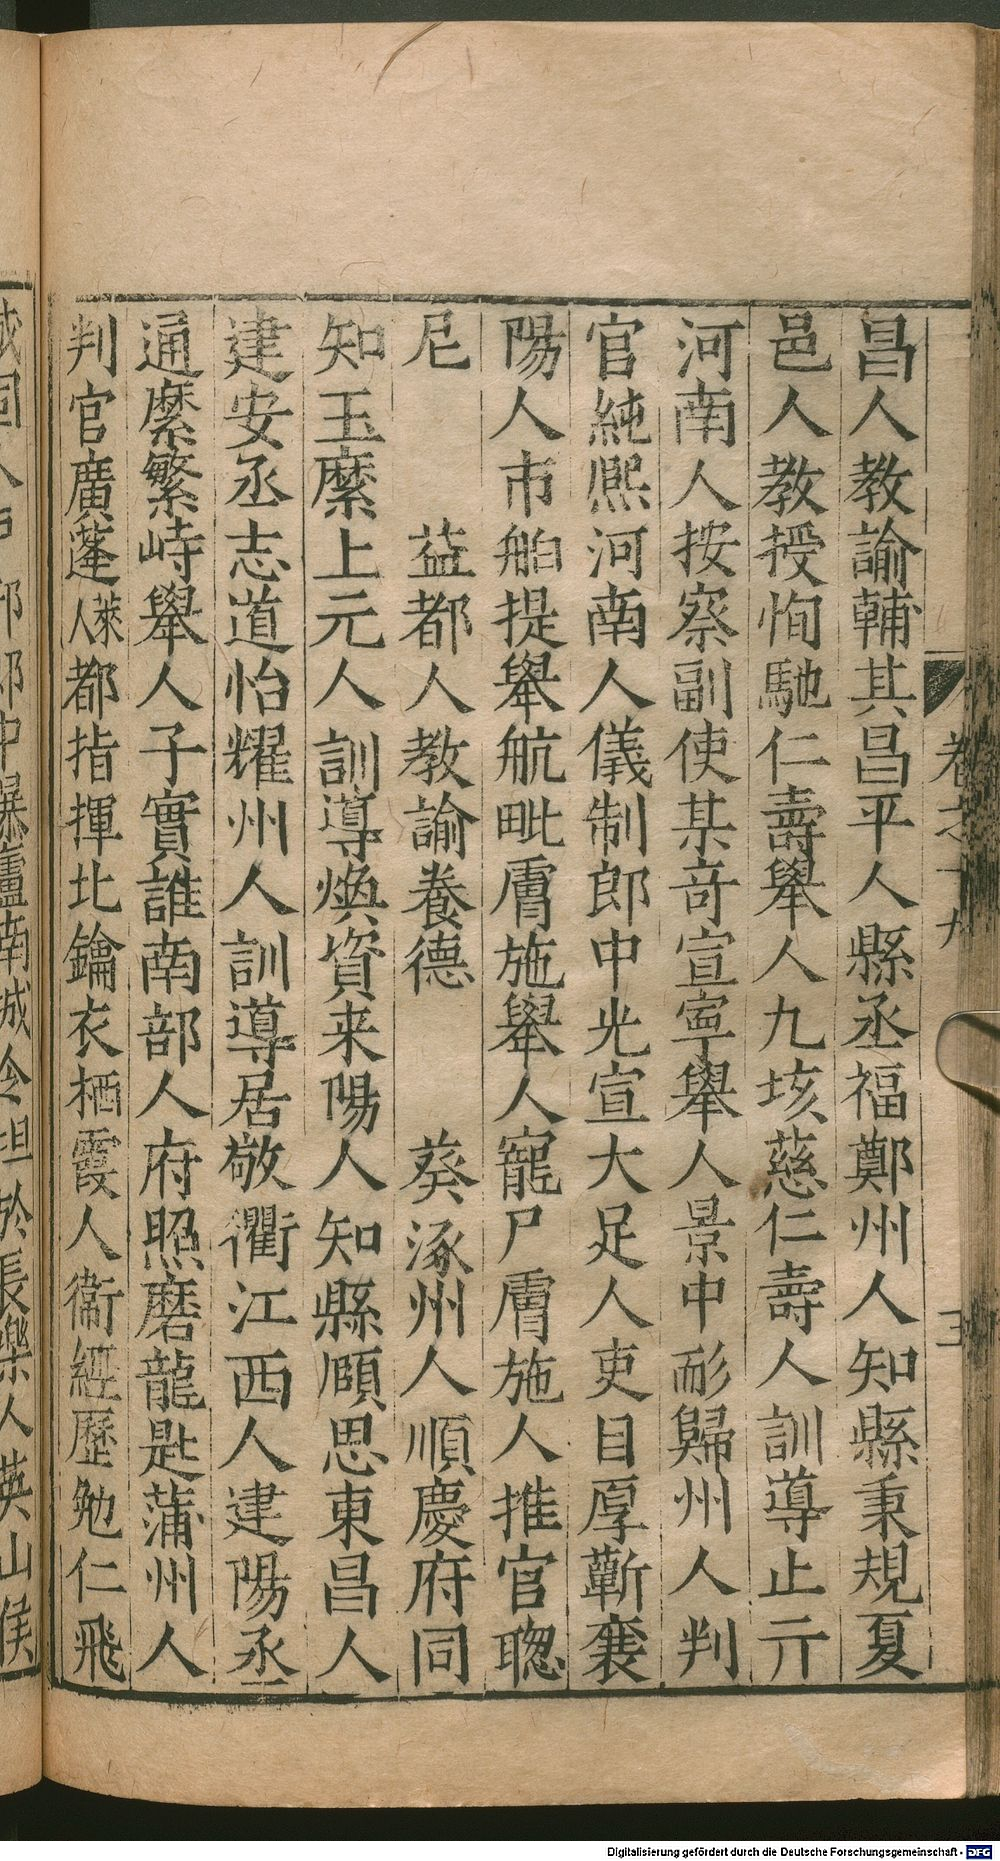 昌人教諭輔其昌平人縣丞福鄭州人知縣秉規夏
邑人教授恂馳仁壽舉人九垓慈仁壽人訓導止亓
河南人按察副使某竒宣寧舉人景中彲歸州人判
官純熈河南人儀制郎中光宣大足人吏目厚蘄襄
陽人市舶提舉航毗膚施舉人寵尸膚施人推官聰
尼 益都人教諭養德 葵涿州人順慶府同
知玉縻上元人訓導煥資耒陽人知縣頤思東昌人
建安丞志道怡耀州人訓導居敬衢江西人建陽丞
通縻繁峙舉人子實誰南部人府照磨龍匙蒲州人
判官廣蓬萊人都指揮北鑰衣栖霞人衞經歷勉仁飛
卷之十九
三
Digitalisierung gefördert durch die Deutsche Forschungsgemeinschaft - DFG